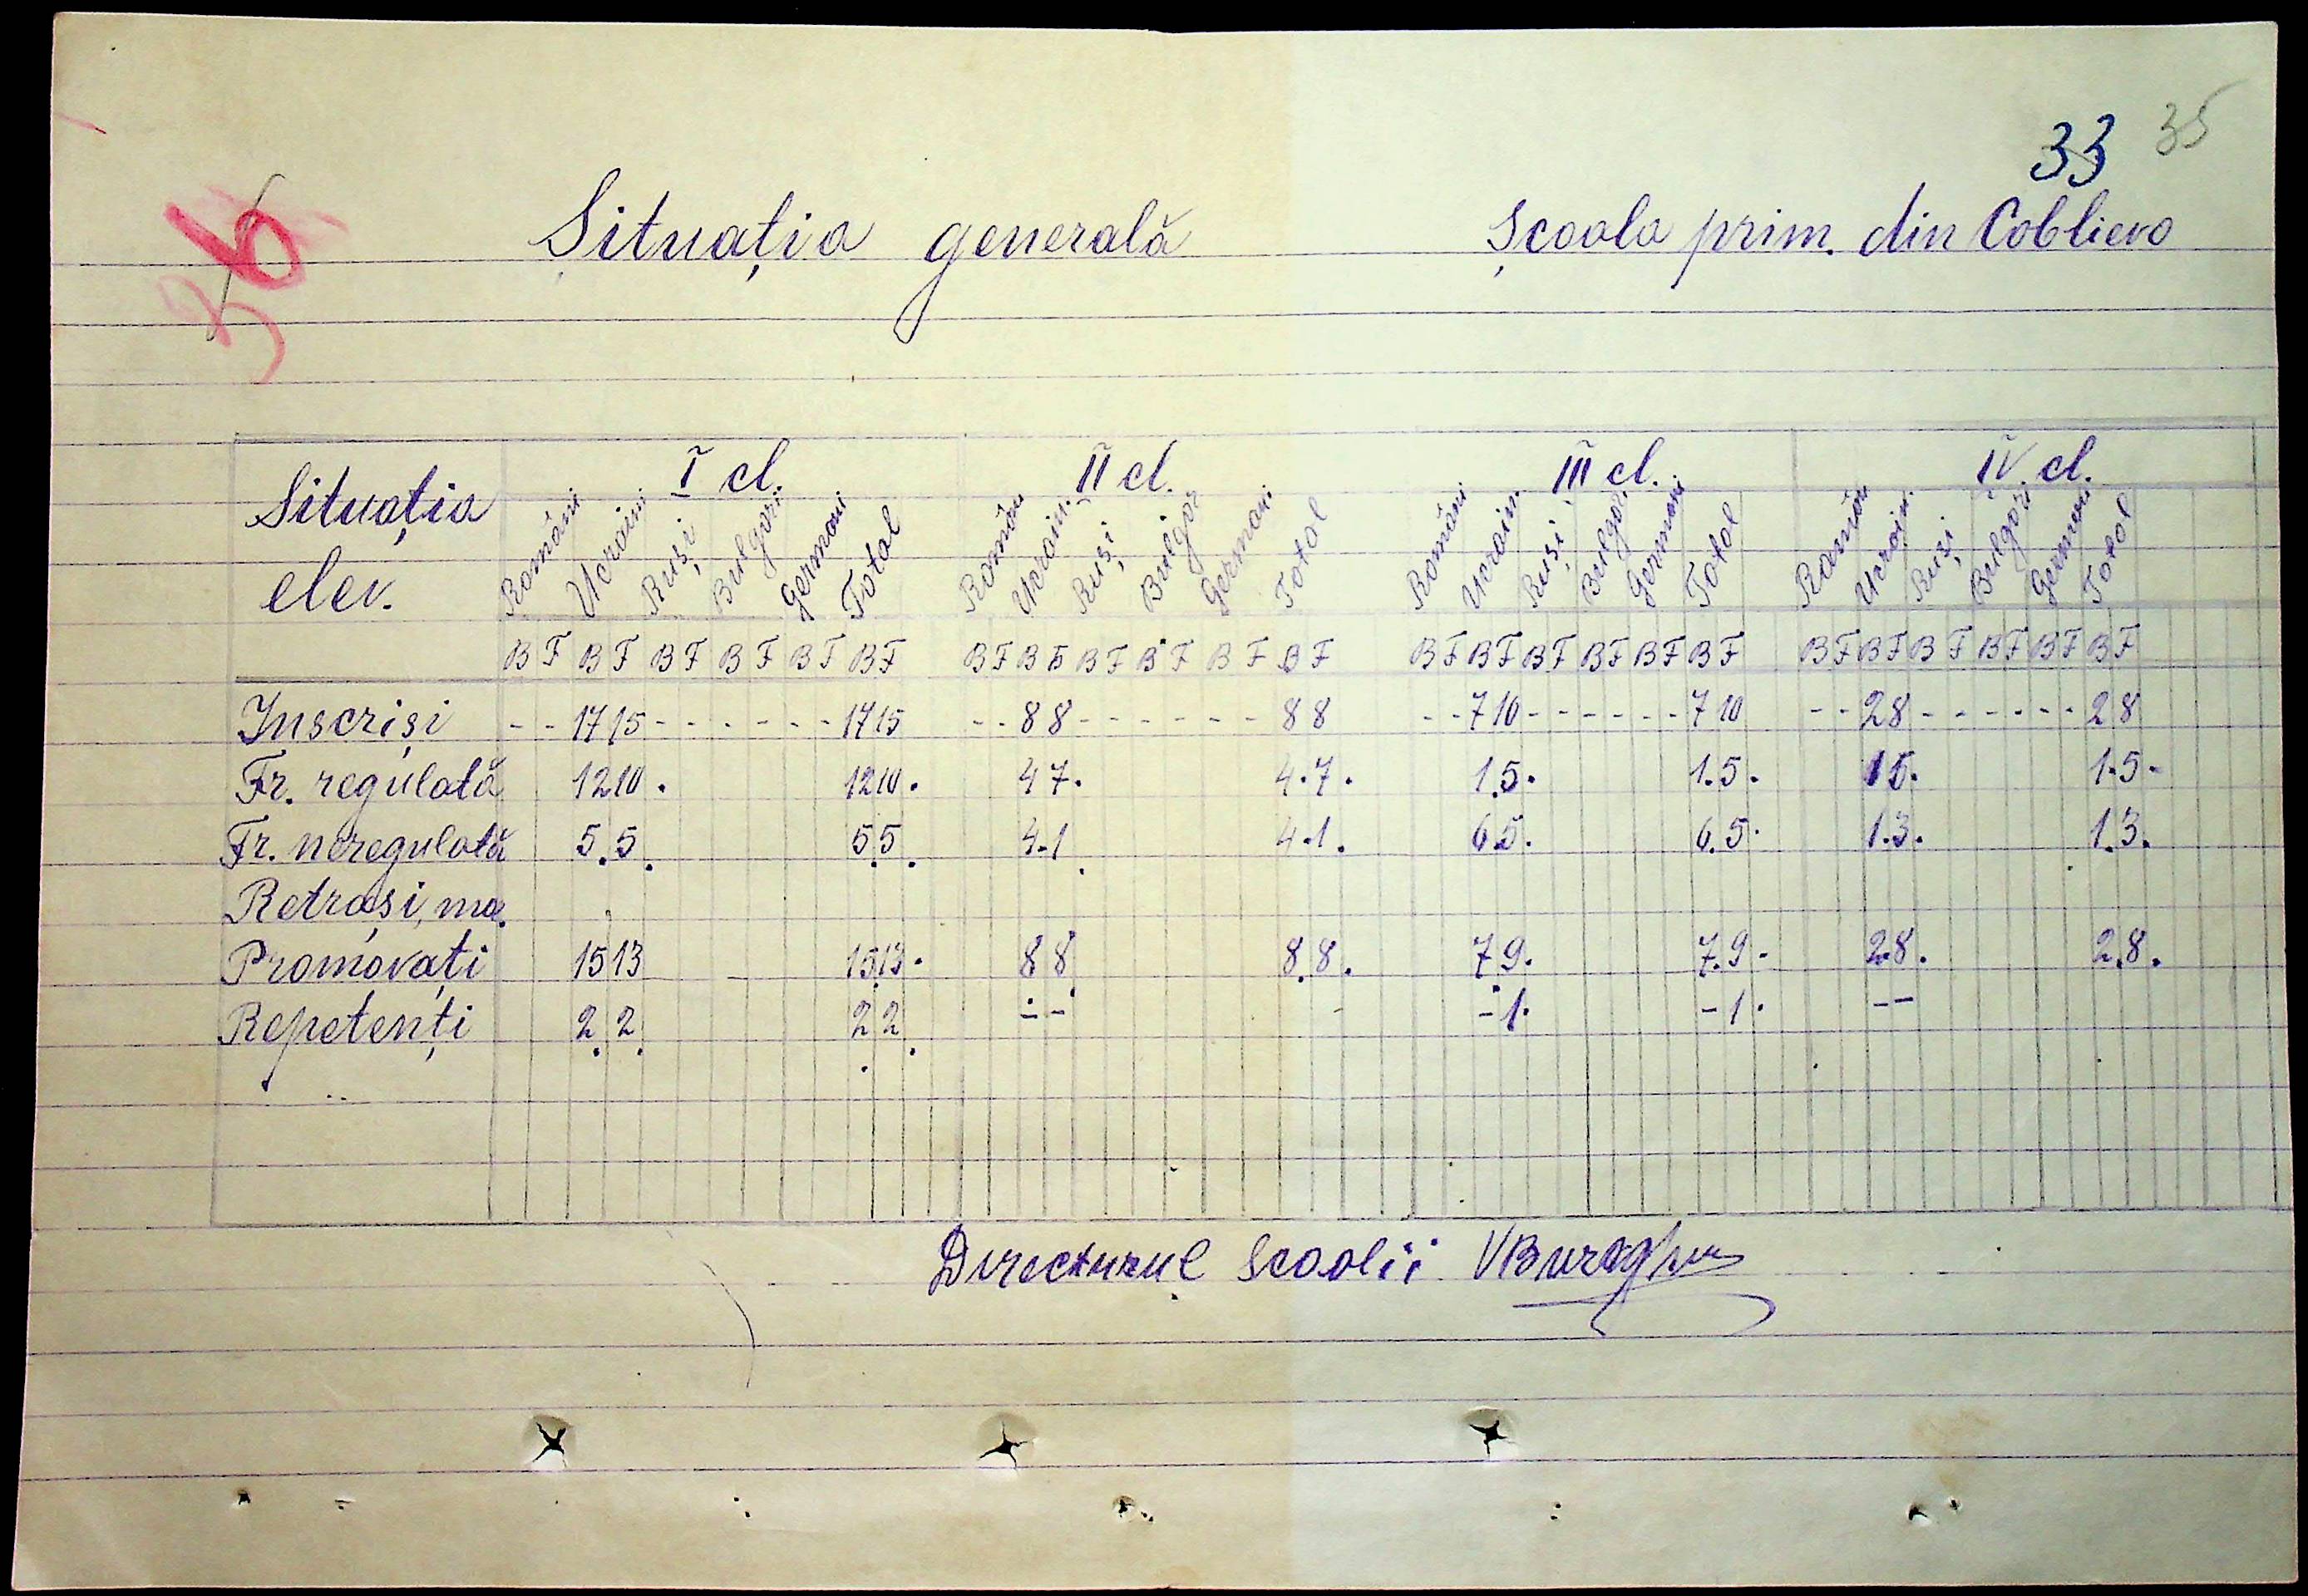 33 35
36
Situația generală Școala prim. din Coblievo
Situația elev. I cl. II cl. III cl. IV. cl.
Români Ucraini Ruși Bulgari Germani Total Români Ukraini. Ruși Bulgar Germani Total Români Ukrain. Ruși Bulgari Germani Total Român Ukrain. Ruși Bulgari Germani Total
B F B F B F B F B F B F B F B F B F B F B F B F B F B F B F B F B F B F B F B F B F B F B F B F
Inscriși - - 17 15 - - - - - - 17 15 - - 8 8 - - - - - - 8 8 - - 7 10 - - - - - - 7 10 - - 2 8 - - - - - - 2 8
Fr. regulată 12 10 . 12 10 . 4 7 . 4 . 7 . 1 . 5 . 1 . 5 . 1 5 . 1 . 5 -
Fr. neregulată 5 . 5 . 5 . 5 . 4 . 1 . 4 . 1 . 6 5 . 6 . 5 . 1 . 3 . 1 . 3 .
Retrași, ma.
Promovați 15 13 15 13 . 8 8 8 . 8 . 7 9 . 7 . 9 - 2 8 . 2 . 8 .
Repetenți 2 2 . 2 2 . - - - - 1 . - 1 . - -
Directurul scoolii VBuraghu